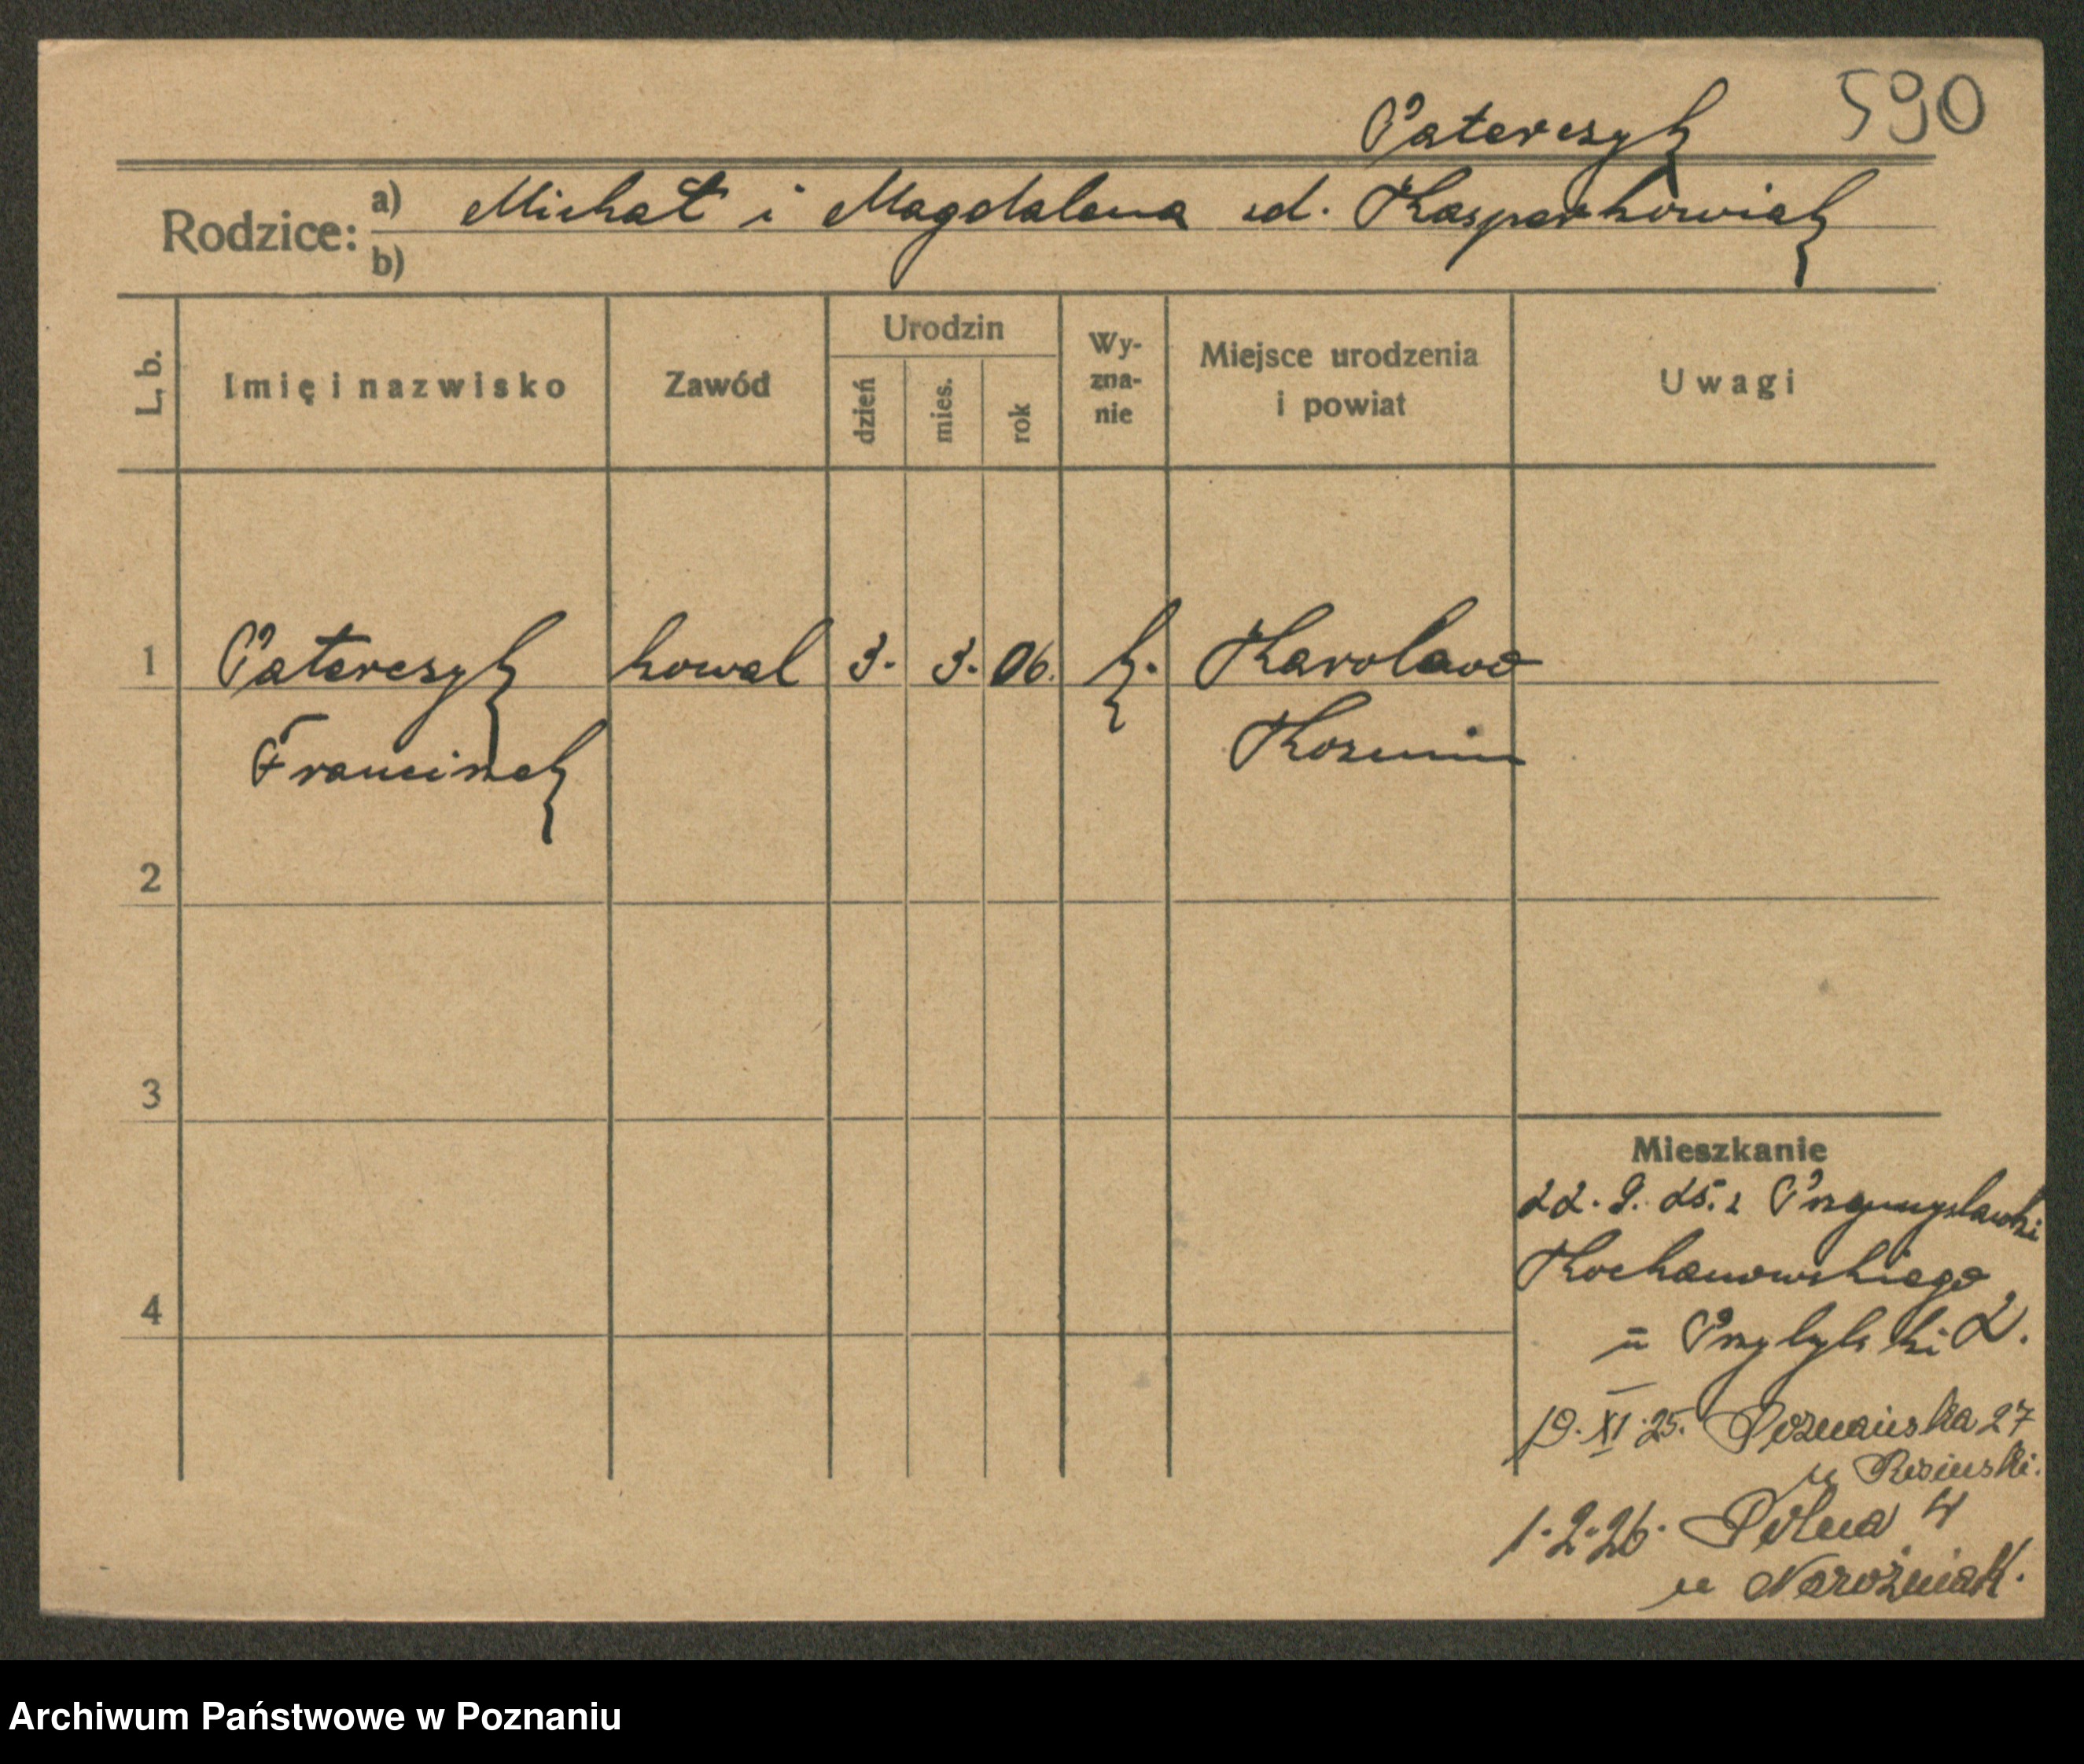 590
Paterczyk
Rodzice: a) Michał i Magdalena zd. Kasperkowiak
b)
L. b. Imię i nazwisko Zawód Urodzin dzień mies. rok Wy-zna-nie Miejsce urodzenia i powiat Uwagi
1 Paterczyk kowal 3. 3. 06. k. Karolewo
Franciszek Kozmin
2
3
4
Mieszkanie
22. 9. 25. z Przemysławki
Kochanowskiego
u Przybylski 2.
19. XI. 25. Poznańska 27
u
1. 2. 26. Polna 4
u Narożniak.
Archiwum Państwowe w Poznaniu